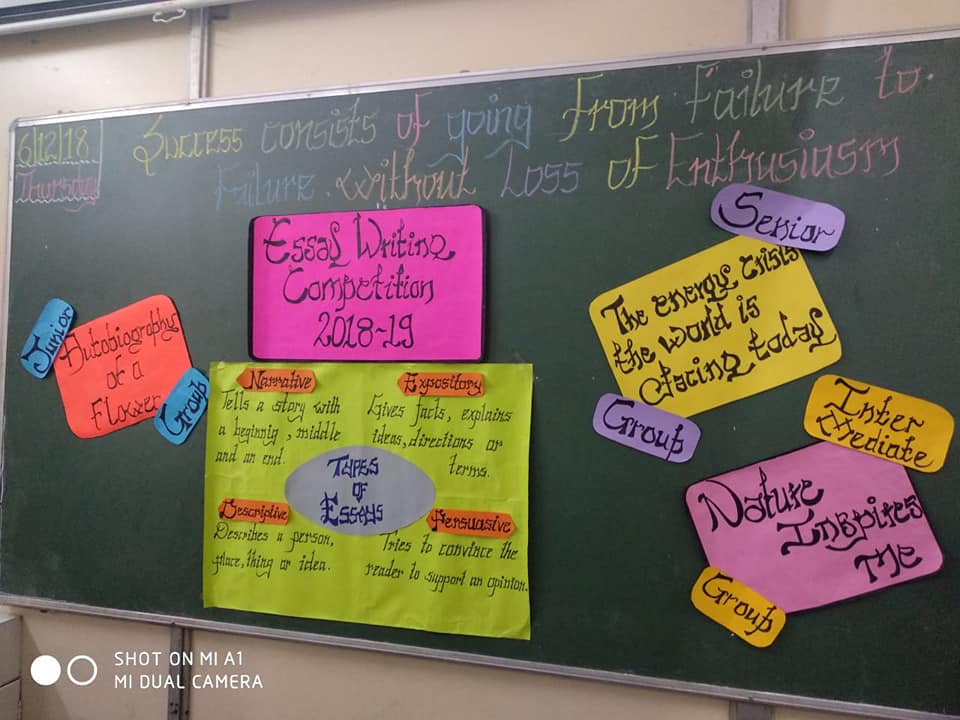 6/12/18
Thursday
Success consists of going from Failure to
Failure without Loss of Enthusiasm
Essay Writing
Competition
2018-19
Junior
Autobiography
of a
Flower
Group
Narrative
Tells a story with
a beginnig, middle
and an end.
Expository
Gives facts, explains
ideas, directions or
terms.
TYPES
OF
ESSAYS
Descriptive
Describes a person,
place, thing or idea.
Persuasive
Tries to convince the
reader to support an opinion.
Senior
The energy crisis
the world is
facing today
Group
Inter
Mediate
Nature
Inspires
Me
Group
SHOT ON MI A1
MI DUAL CAMERA